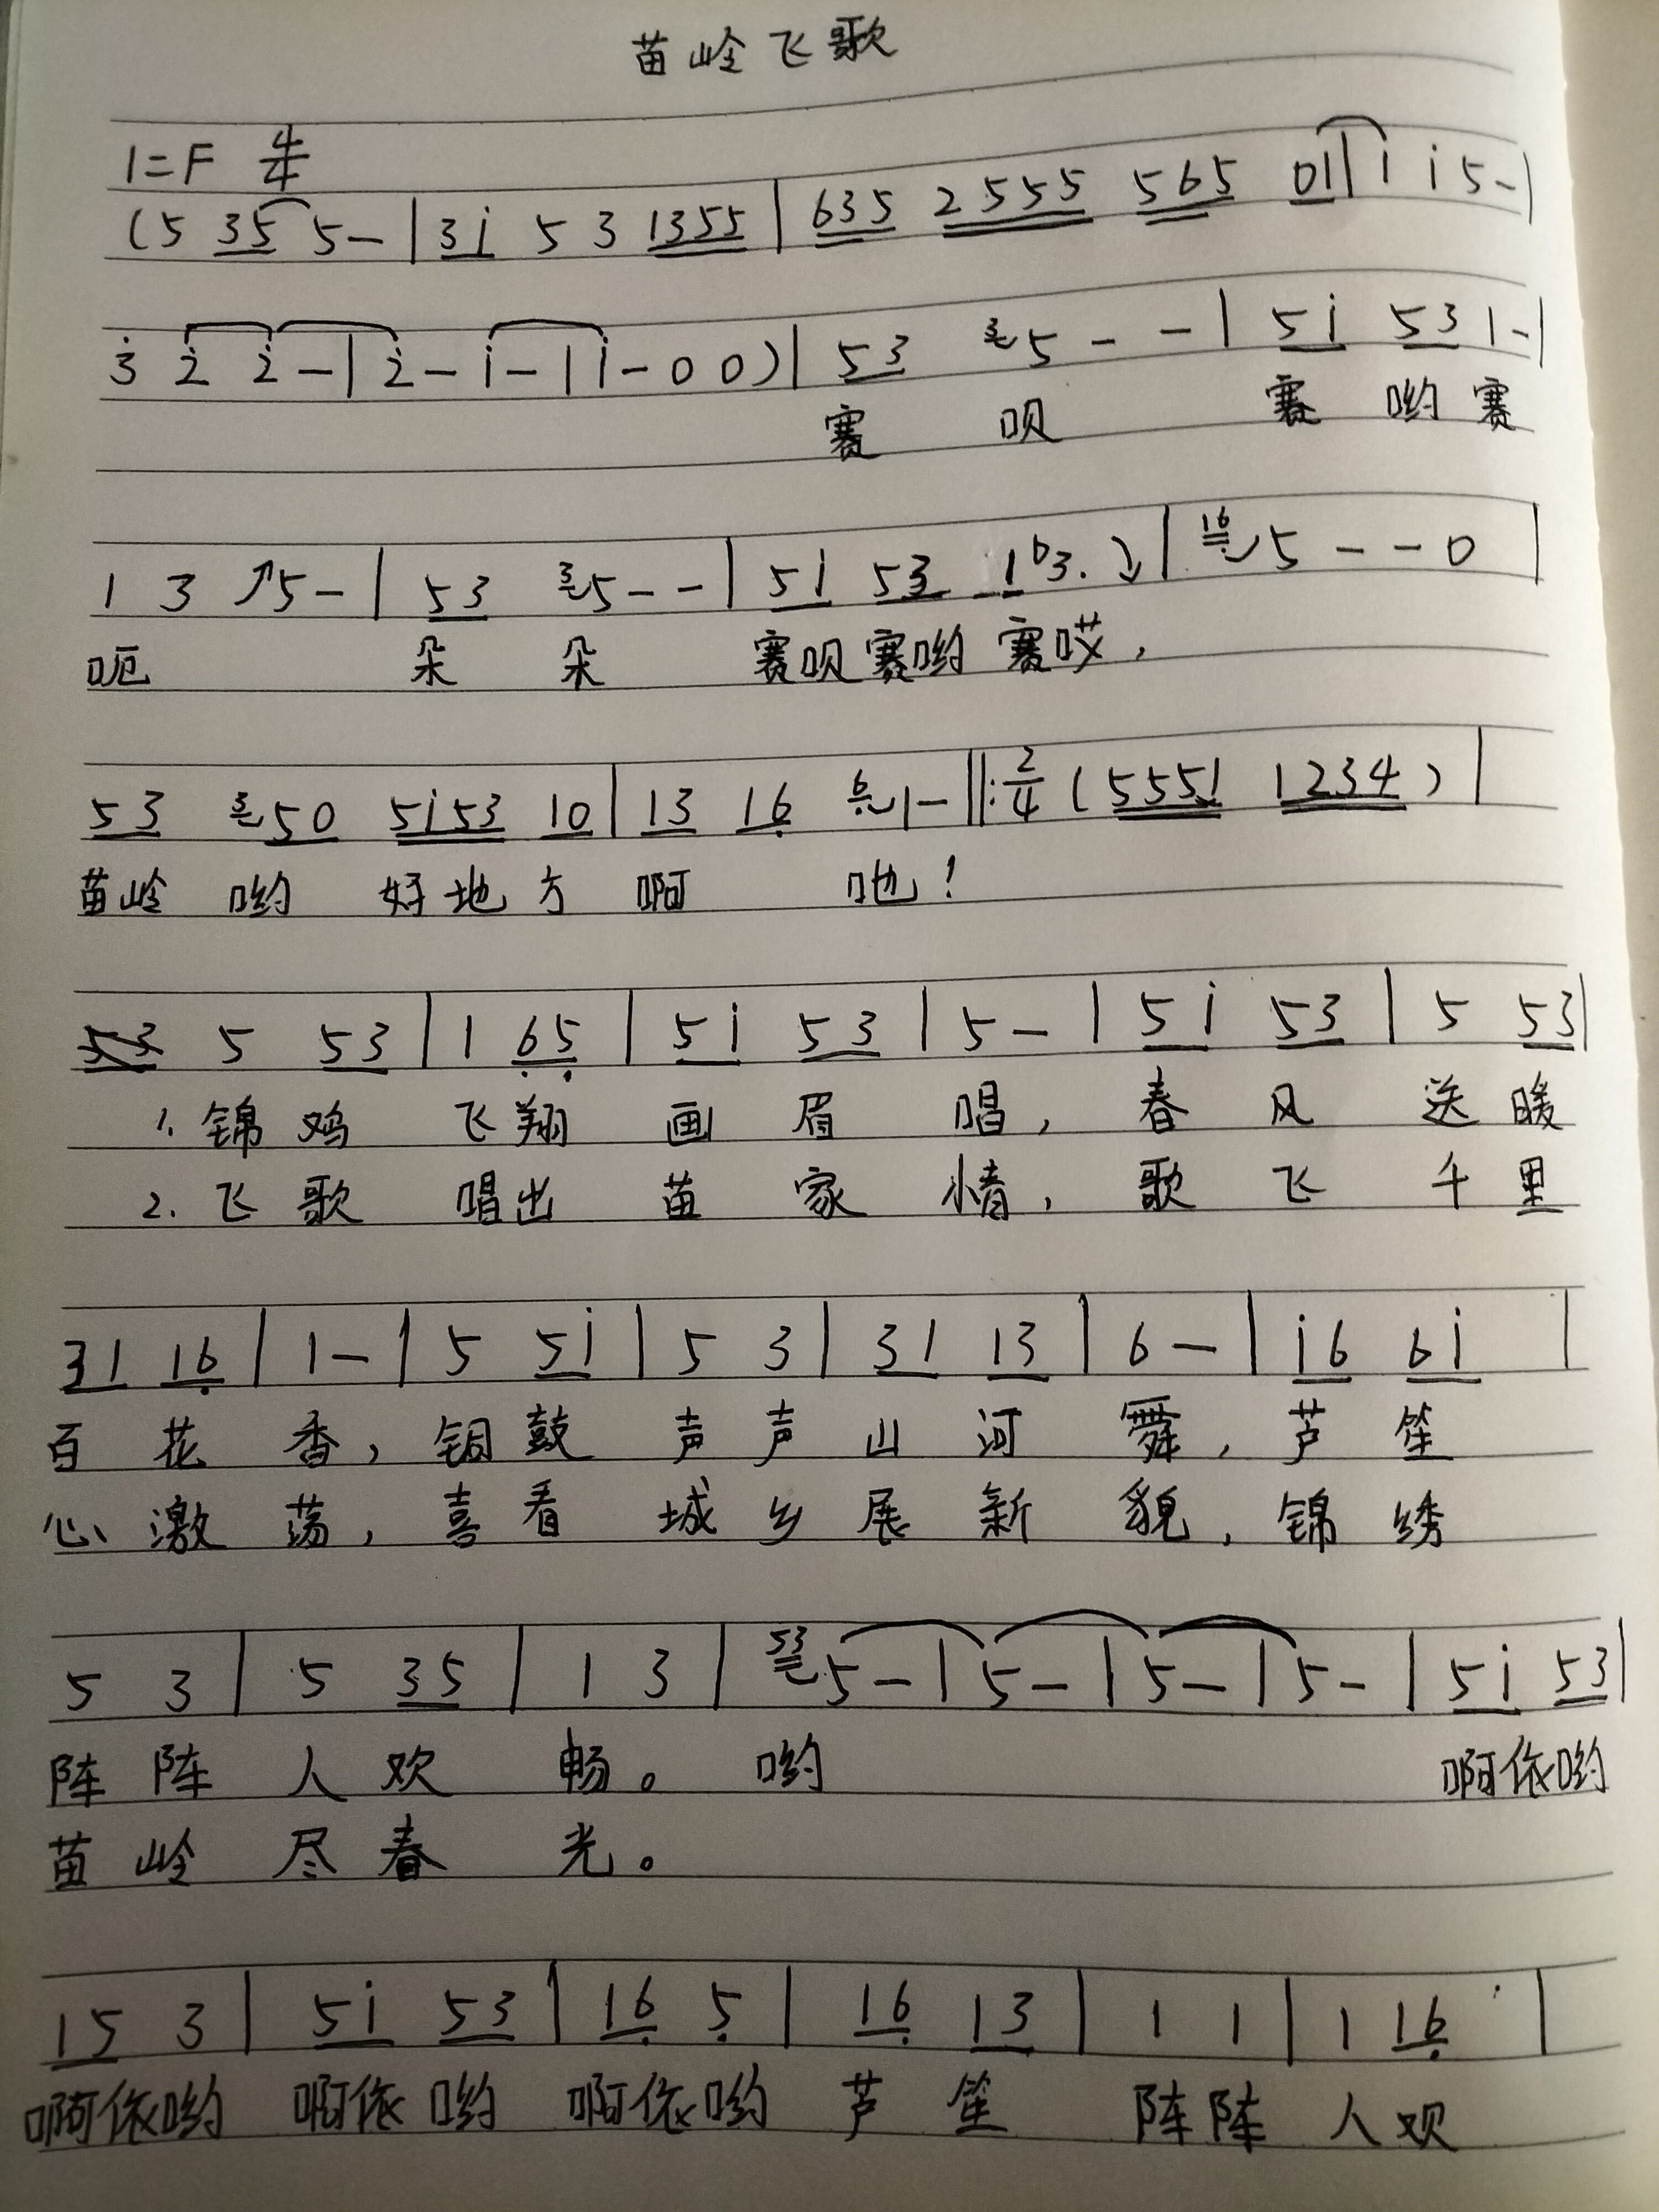 苗岭飞歌
1=F 4/4
(5 35 5 - | 3i 5 3 1355 | 635 2555 565 01 | i i 5 - |
3̇ 2̇ 2̇ - | 2̇ - i - | i - 0 0 ) | 53 ³5 - - | 5i 53 1 - |
赛 呗 赛 哟 赛
1 3 ↗5 - | 53 ³5 - - | 5i 53 1♭3. ↘ | ¹⁶5 - - 0 |
呃 朵 朵 赛呗赛哟 赛哎，
53 ³50 5i53 10 | 13 16̣ ⁶̣1 - ‖: 2/4 (5551 1234) |
苗岭 哟 好地方 啊 吔！
5 53 | 1 6̣5̣ | 5i 53 | 5 - | 5i 53 | 5 53 |
1. 锦鸡 飞翔 画 眉 唱， 春 风 送 暖
2. 飞歌 唱出 苗 家 情， 歌 飞 千 里
31 16̣ | 1 - | 5 5i | 5 3 | 31 13 | 6 - | i6 6i |
百 花 香， 铜鼓 声声 山 河 舞， 芦 笙
心 激 荡， 喜看 城乡 展 新 貌， 锦 绣
5 3 | 5 35 | 1 3 | ⁵³5 - | 5 - | 5 - | 5 - | 5i 53 |
阵 阵 人 欢 畅。 哟 啊依哟
苗 岭 尽 春 光。
15 3 | 5i 53 | 16̣ 5̣ | 16̣ 13 | 1 1 | 1 16̣ |
啊依哟 啊依哟 啊依哟 芦 笙 阵阵 人 欢